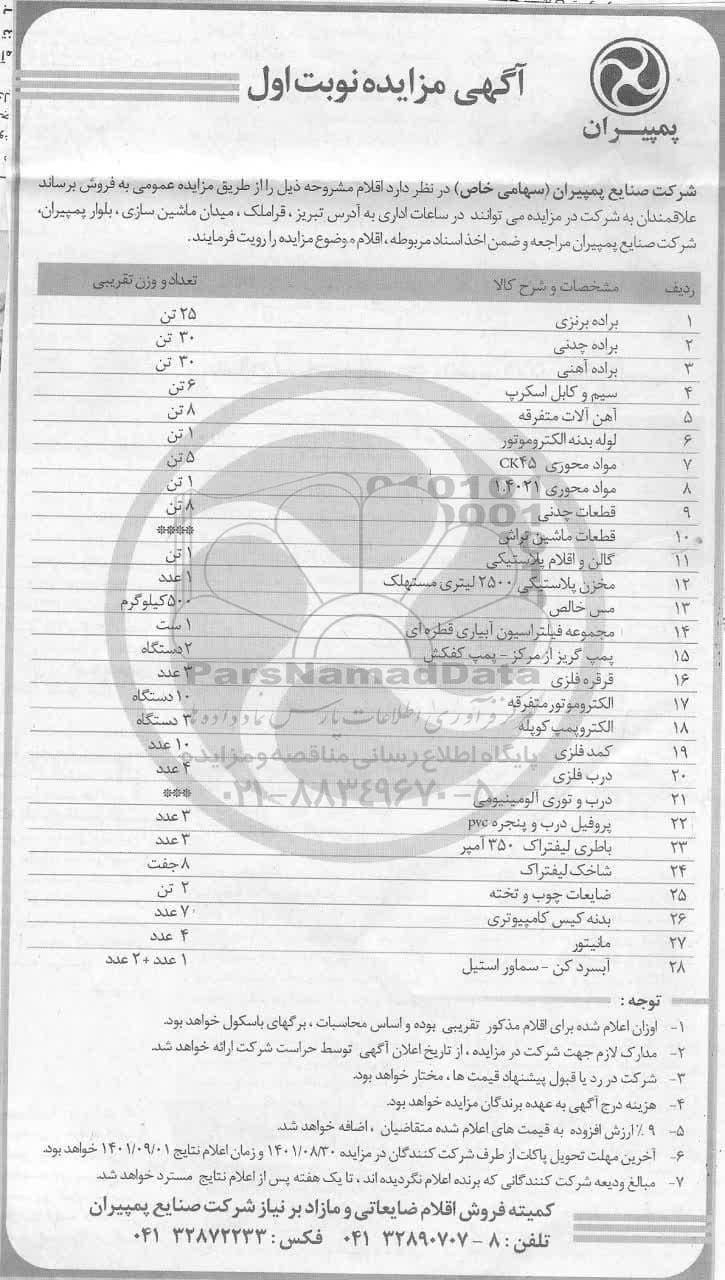 پمپیران
آگهی مزایده نوبت اول
شرکت صنایع پمپیران (سهامی خاص) در نظر دارد اقلام مشروحه ذیل را از طریق مزایده عمومی به فروش برساند
علاقمندان به شرکت در مزایده می توانند در ساعات اداری به آدرس تبریز ، قراملک ، میدان ماشین سازی ، بلوار پمپیران،
شرکت صنایع پمپیران مراجعه و ضمن اخذ اسناد مربوطه ، اقلام موضوع مزایده را رویت فرمایند.
ردیف مشخصات و شرح کالا تعداد و وزن تقریبی
۱ براده برنزی ۲۵ تن
۲ براده چدنی ۳۰ تن
۳ براده آهنی ۳۰ تن
۴ سیم و کابل اسکرپ ۶ تن
۵ آهن آلات متفرقه ۸ تن
۶ لوله بدنه الکتروموتور ۱ تن
۷ مواد محوری CK۴۵ ۵ تن
۸ مواد محوری ۱.۴۰۲۱ ۱ تن
۹ قطعات چدنی ۸ تن
۱۰ قطعات ماشین تراش ****
۱۱ گالن و اقلام پلاستیکی ۱ تن
۱۲ مخزن پلاستیکی ۲۵۰۰ لیتری مستهلک ۱ عدد
۱۳ مس خالص ۵۰۰ کیلوگرم
۱۴ مجموعه فیلتراسیون آبیاری قطره ای ۱ ست
۱۵ پمپ گریز از مرکز - پمپ کفکش ۲ دستگاه
۱۶ قرقره فلزی ۳ عدد
۱۷ الکتروموتور متفرقه ۱۰ دستگاه
۱۸ الکتروپمپ کوپله ۳ دستگاه
۱۹ کمد فلزی ۱۰ عدد
۲۰ درب فلزی ۴ عدد
۲۱ درب و توری آلومینیومی ***
۲۲ پروفیل درب و پنجره pvc ۳ عدد
۲۳ باطری لیفتراک ۳۵۰ آمپر ۳ عدد
۲۴ شاخک لیفتراک ۸ جفت
۲۵ ضایعات چوب و تخته ۲ تن
۲۶ بدنه کیس کامپیوتری ۷ عدد
۲۷ مانیتور ۴ عدد
۲۸ آبسرد کن - سماور استیل ۱ عدد + ۲ عدد
ParsNamadData
پایگاه اطلاع رسانی مناقصه و مزایده
۰۲۱-۸۸۳۴۹۶۷۰-۵
توجه :
۱- اوزان اعلام شده برای اقلام مذکور تقریبی بوده و اساس محاسبات ، برگهای باسکول خواهد بود.
۲- مدارک لازم جهت شرکت در مزایده ، از تاریخ اعلان آگهی توسط حراست شرکت ارائه خواهد شد.
۳- شرکت در رد یا قبول پیشنهاد قیمت ها ، مختار خواهد بود.
۴- هزینه درج آگهی به عهده برندگان مزایده خواهد بود.
۵- ۹ ٪ ارزش افزوده به قیمت های اعلام شده متقاضیان ، اضافه خواهد شد.
۶- آخرین مهلت تحویل پاکات از طرف شرکت کنندگان در مزایده ۱۴۰۱/۰۸/۳۰ و زمان اعلام نتایج ۱۴۰۱/۰۹/۰۱ خواهد بود.
۷- مبالغ ودیعه شرکت کنندگانی که برنده اعلام نگردیده اند ، تا یک هفته پس از اعلام نتایج مسترد خواهد شد.
کمیته فروش اقلام ضایعاتی و مازاد بر نیاز شرکت صنایع پمپیران
تلفن : ۸ - ۳۲۸۹۰۷۰۷ ۰۴۱ فکس : ۳۲۸۷۲۲۳۳ ۰۴۱